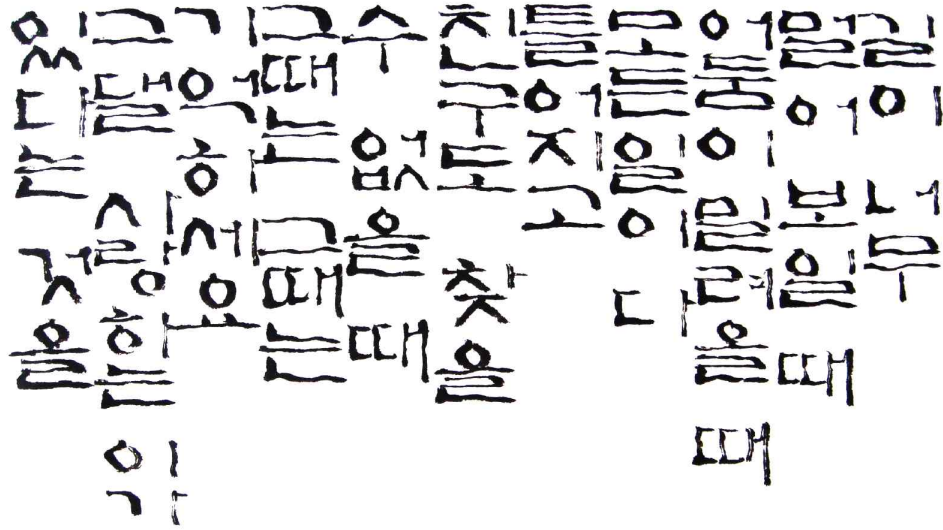 길이 너무
멀어 보일 때
어둠이 밀려올 때
모든 일이 다
틀어지고
친구도 찾을
수 없을 때
그때는 그때는
기억하세요
그댈 사랑하는 이가
있다는 것을